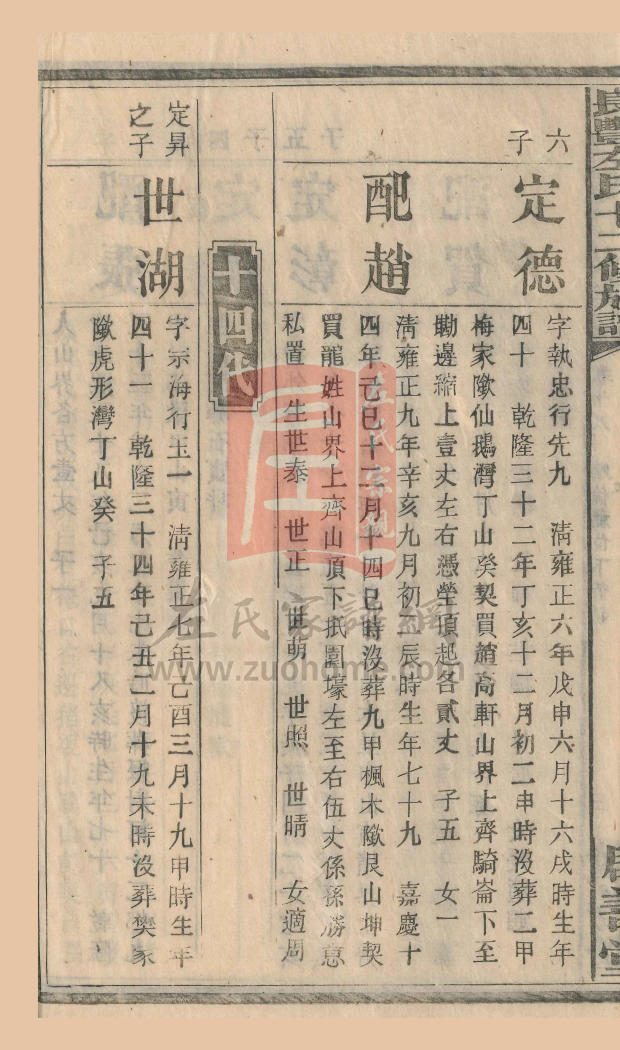 長豐左氏十二修族譜
六子
定德
字執忠行先九 清雍正六年戊申六月十六戌時生年
四十 乾隆三十二年丁亥十二月初二申時沒葬二甲
梅家墩仙鵝灣丁山癸契買 高軒山界上齊騎崙下至
勘邊 上壹丈左右憑塋頂起各貳丈 子五 女一
配趙
清雍正九年辛亥九月初二辰時生年七十九 嘉慶十
四年己巳十二月十四巳時沒葬九甲楓木墩艮山坤契
買龍姓山界上齊山頂下抵圍壕左至右伍丈係孫勝意
私置 生世泰 世正 世萌 世照 世晴 女適周
十四代
定昇之子
世湖
字宗海行玉一 清雍正七年己酉三月十九申時生年
四十一 乾隆三十四年己丑二月十九未時沒葬樊家
墩虎形灣丁山癸 子五
左氏家譜網
www.zuohome.com